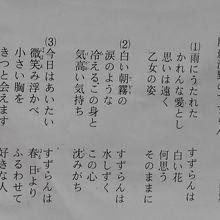 (1)雨にうたれた すずらんは
かれんな愛とし 白い花
思いは遠く 何思う
乙女の姿 そのままに
(2)白い朝霧の すずらんは
涙のような 水しずく
冷えるこの身と この心
気高い気持ち 沈みがち
(3)今日はあいたい すずらんは
微笑み浮かべ 春日より
小さい胸を ふるわせて
きっと会えます 好きな人